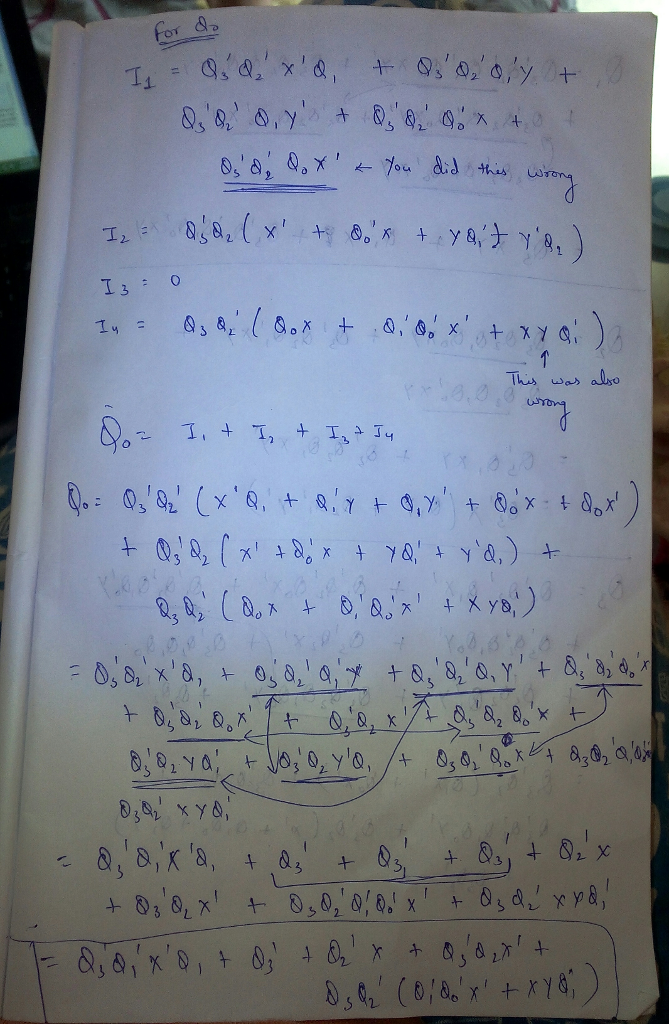 For Q₀
I₁ = Q₃'Q₂'x'Q₁ + Q₃'Q₂'Q₁'Y +
Q₃'Q₂'Q₁Y' + Q₃'Q₂'Q₀'x +
Q₃'Q₂'Q₀x' ← You did this wrong
I₂ = Q₃'Q₂(x' + Q₀'x + YQ₁' + Y'Q₂)
I₃ = 0
I₄ = Q₃Q₂'(Q₀x + Q₁'Q₀'x' + xYQ₁')
↑
This was also
wrong
Q₀ = I₁ + I₂ + I₃ + I₄
Q₀ = Q₃'Q₂'(x'Q₁ + Q₁'Y + Q₁Y' + Q₀'x + Q₀x')
+ Q₃'Q₂(x' + Q₀'x + YQ₁' + Y'Q₁) +
Q₃Q₂'(Q₀x + Q₁'Q₀'x' + xYQ₁')
= Q₃'Q₂'x'Q₁ + Q₃'Q₂'Q₁'Y + Q₃'Q₂'Q₁Y' + Q₃'Q₂'Q₀'x
+ Q₃'Q₂'Q₀x' + Q₃'Q₂x' + Q₃'Q₂Q₀'x +
Q₃'Q₂YQ₁' + Q₃'Q₂Y'Q₁ + Q₃Q₂'Q₀x + Q₃Q₂'Q₁'Q₀'
Q₃Q₂'xYQ₁'
= Q₃'Q₁'x'Q₁ + Q₃' + Q₃' + Q₃' + Q₂'x
+ Q₃'Q₂x' + Q₃Q₂'Q₁'Q₀'x' + Q₃Q₂'xYQ₁'
= Q₃'Q₁'x'Q₁ + Q₃' + Q₂'x + Q₃'Q₂x' +
Q₃Q₂'(Q₁'Q₀'x' + xYQ₁')